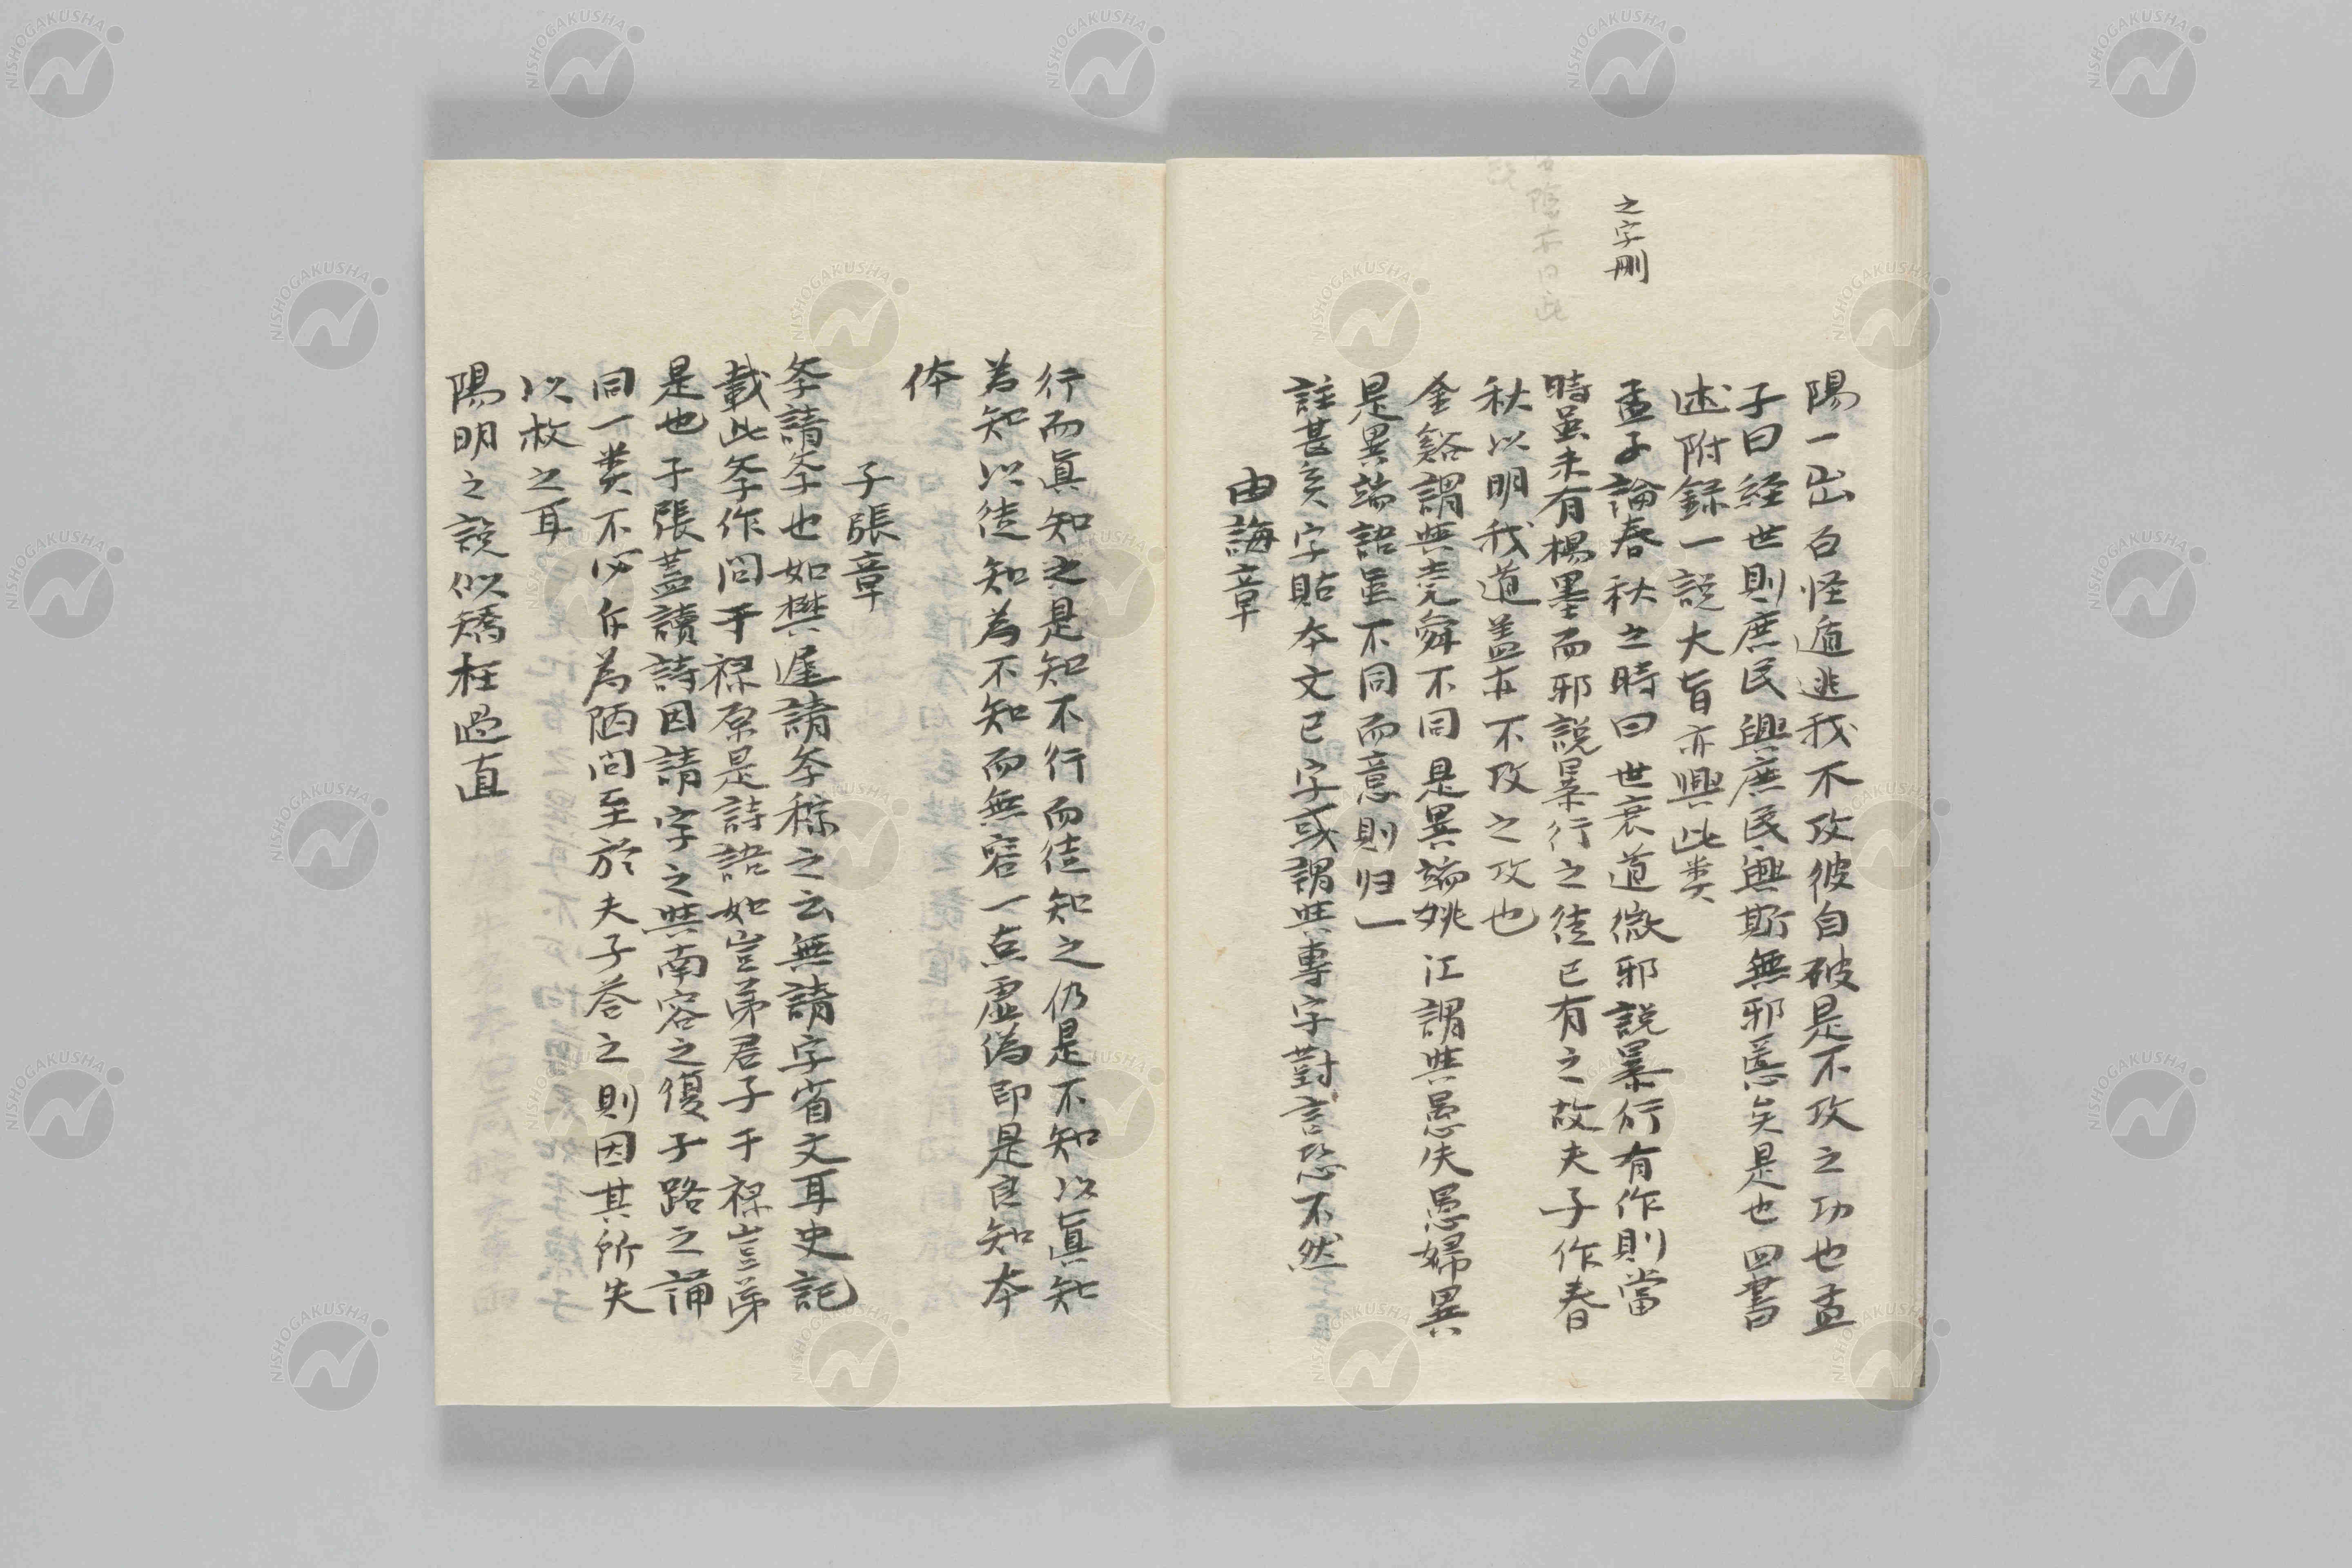 之字刪
陽一出百怪遁逃我不攻彼自破是不攻之功也孟
子曰経世則庶民興庶民興斯無邪慝矣是也四書
述附録一説大旨亦興此类
孟子論春秋之時曰世衰道微邪説暴行有作則當
時虽未有楊墨而邪説暴行之徒已有之故夫子作春
秋以明我道盖亦不攻之攻也
金谿謂與堯舜不同是異端姚江謂與愚夫愚婦異
是異端語虽不同而意則归一
註甚矣字貼本文已字或謂與專字對言恐不然
由誨章
行而眞知之是知不行而徒知之仍是不知以眞知
為知以徒知為不知而無容一点虚偽即是良知本
体
子張章
李請李也如樊遲請李稼之云無請字省文耳史記
載此李作问干禄原是詩語如豈弟君子干禄豈弟
是也子張蓋讀詩因請字之與南容之復子路之誦
同一类不必斥為陋问至於夫子荅之則因其所失
以救之耳
陽明之説似矯枉過直
NISHOGAKUSHA